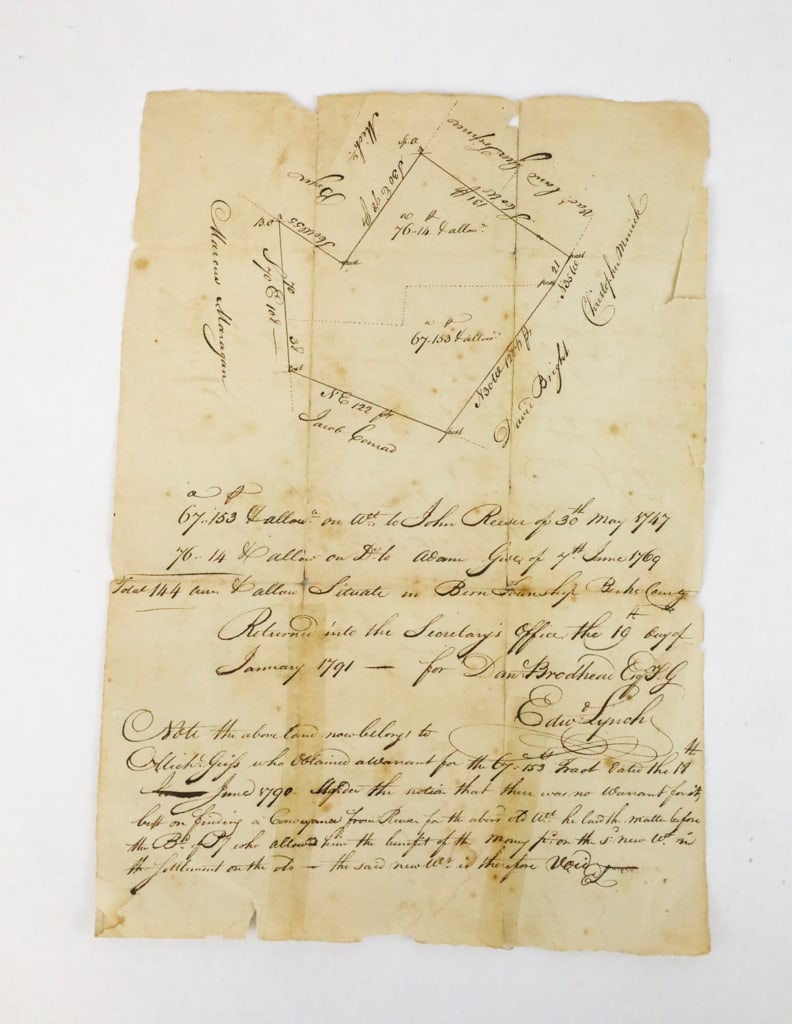 Mich:
Sp. O
S 30 E 92 ps
131 ps
a p
76..14 & allow.
B.O
Marcus Maragan
70
S 70 E 108
38
post
post
21
post
N 35 W
Christopher Minich
a p
67..153 & allow.
N 30 W 120 ps
David Bright
N E 122 ps
post
Jacob Conrad
a p
67..153 & allow.a on Wt. to John Reeser of 30th May 1747
76..14 & allow on Do. to Adam Gies, of 7th June 1769
Total 144 acres & allow Situate in Bern Township Berks County
Returned into the Secretary's Office the 19th day of
January 1791 — for Danl. Brodhead Esqr. S G
Edwd. Lynch
Note the above land now belongs to
Mich: Geiss who obtained a Warrant for the 67..153 Tract dated the 18th
June 1790. Under the notion that there was no Warrant for it,
but on finding a Conveyance from Reeser for the above old Wt. he laid the matter before
the Bd. of Py who allowed him the benefit of the money pd. on the sd. new Wt. in
the Settlement on the do — the said new Wt. is therefore Void